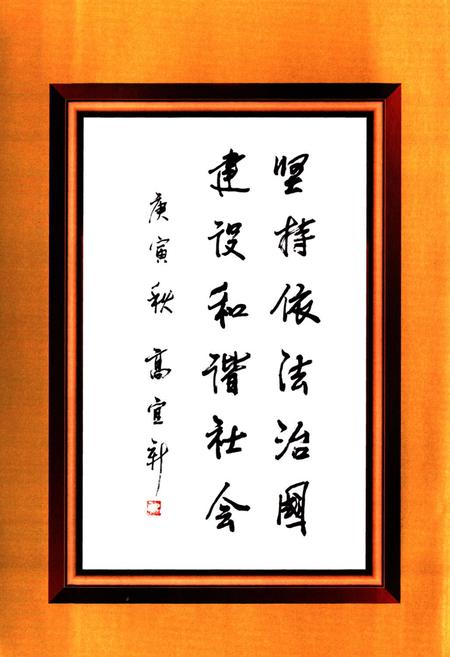 坚持依法治國
建设和谐社会
庚寅秋 高宜新